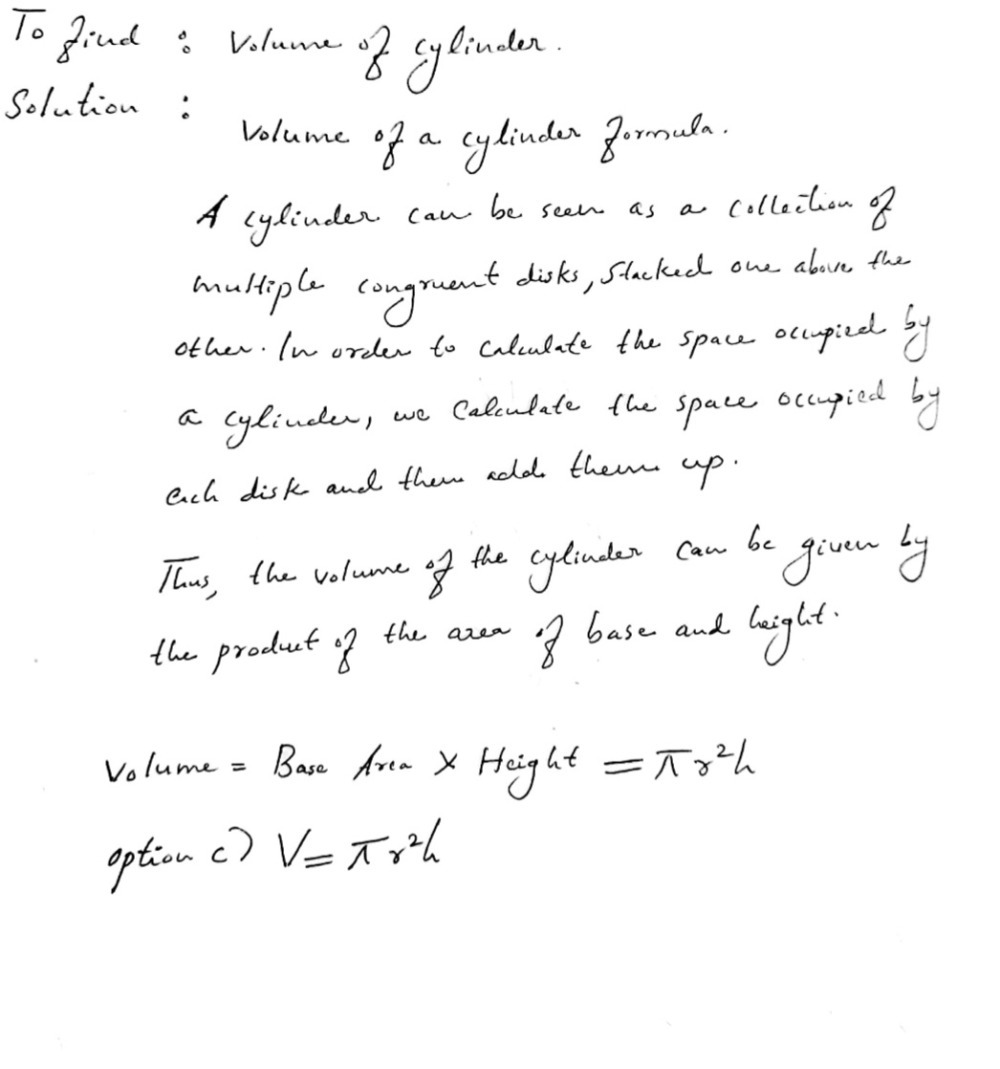 To find : Volume of cylinder.
Solution :
Volume of a cylinder formula.
A cylinder can be seen as a collection of
multiple congruent disks, stacked one above the
other. In order to calculate the space occupied by
a cylinder, we Calculate the space occupied by
each disk and them add them up.
Thus, the volume of the cylinder can be given by
the product of the area of base and height.
Volume = Base Area X Height = πr²h
option c) V = πr²h